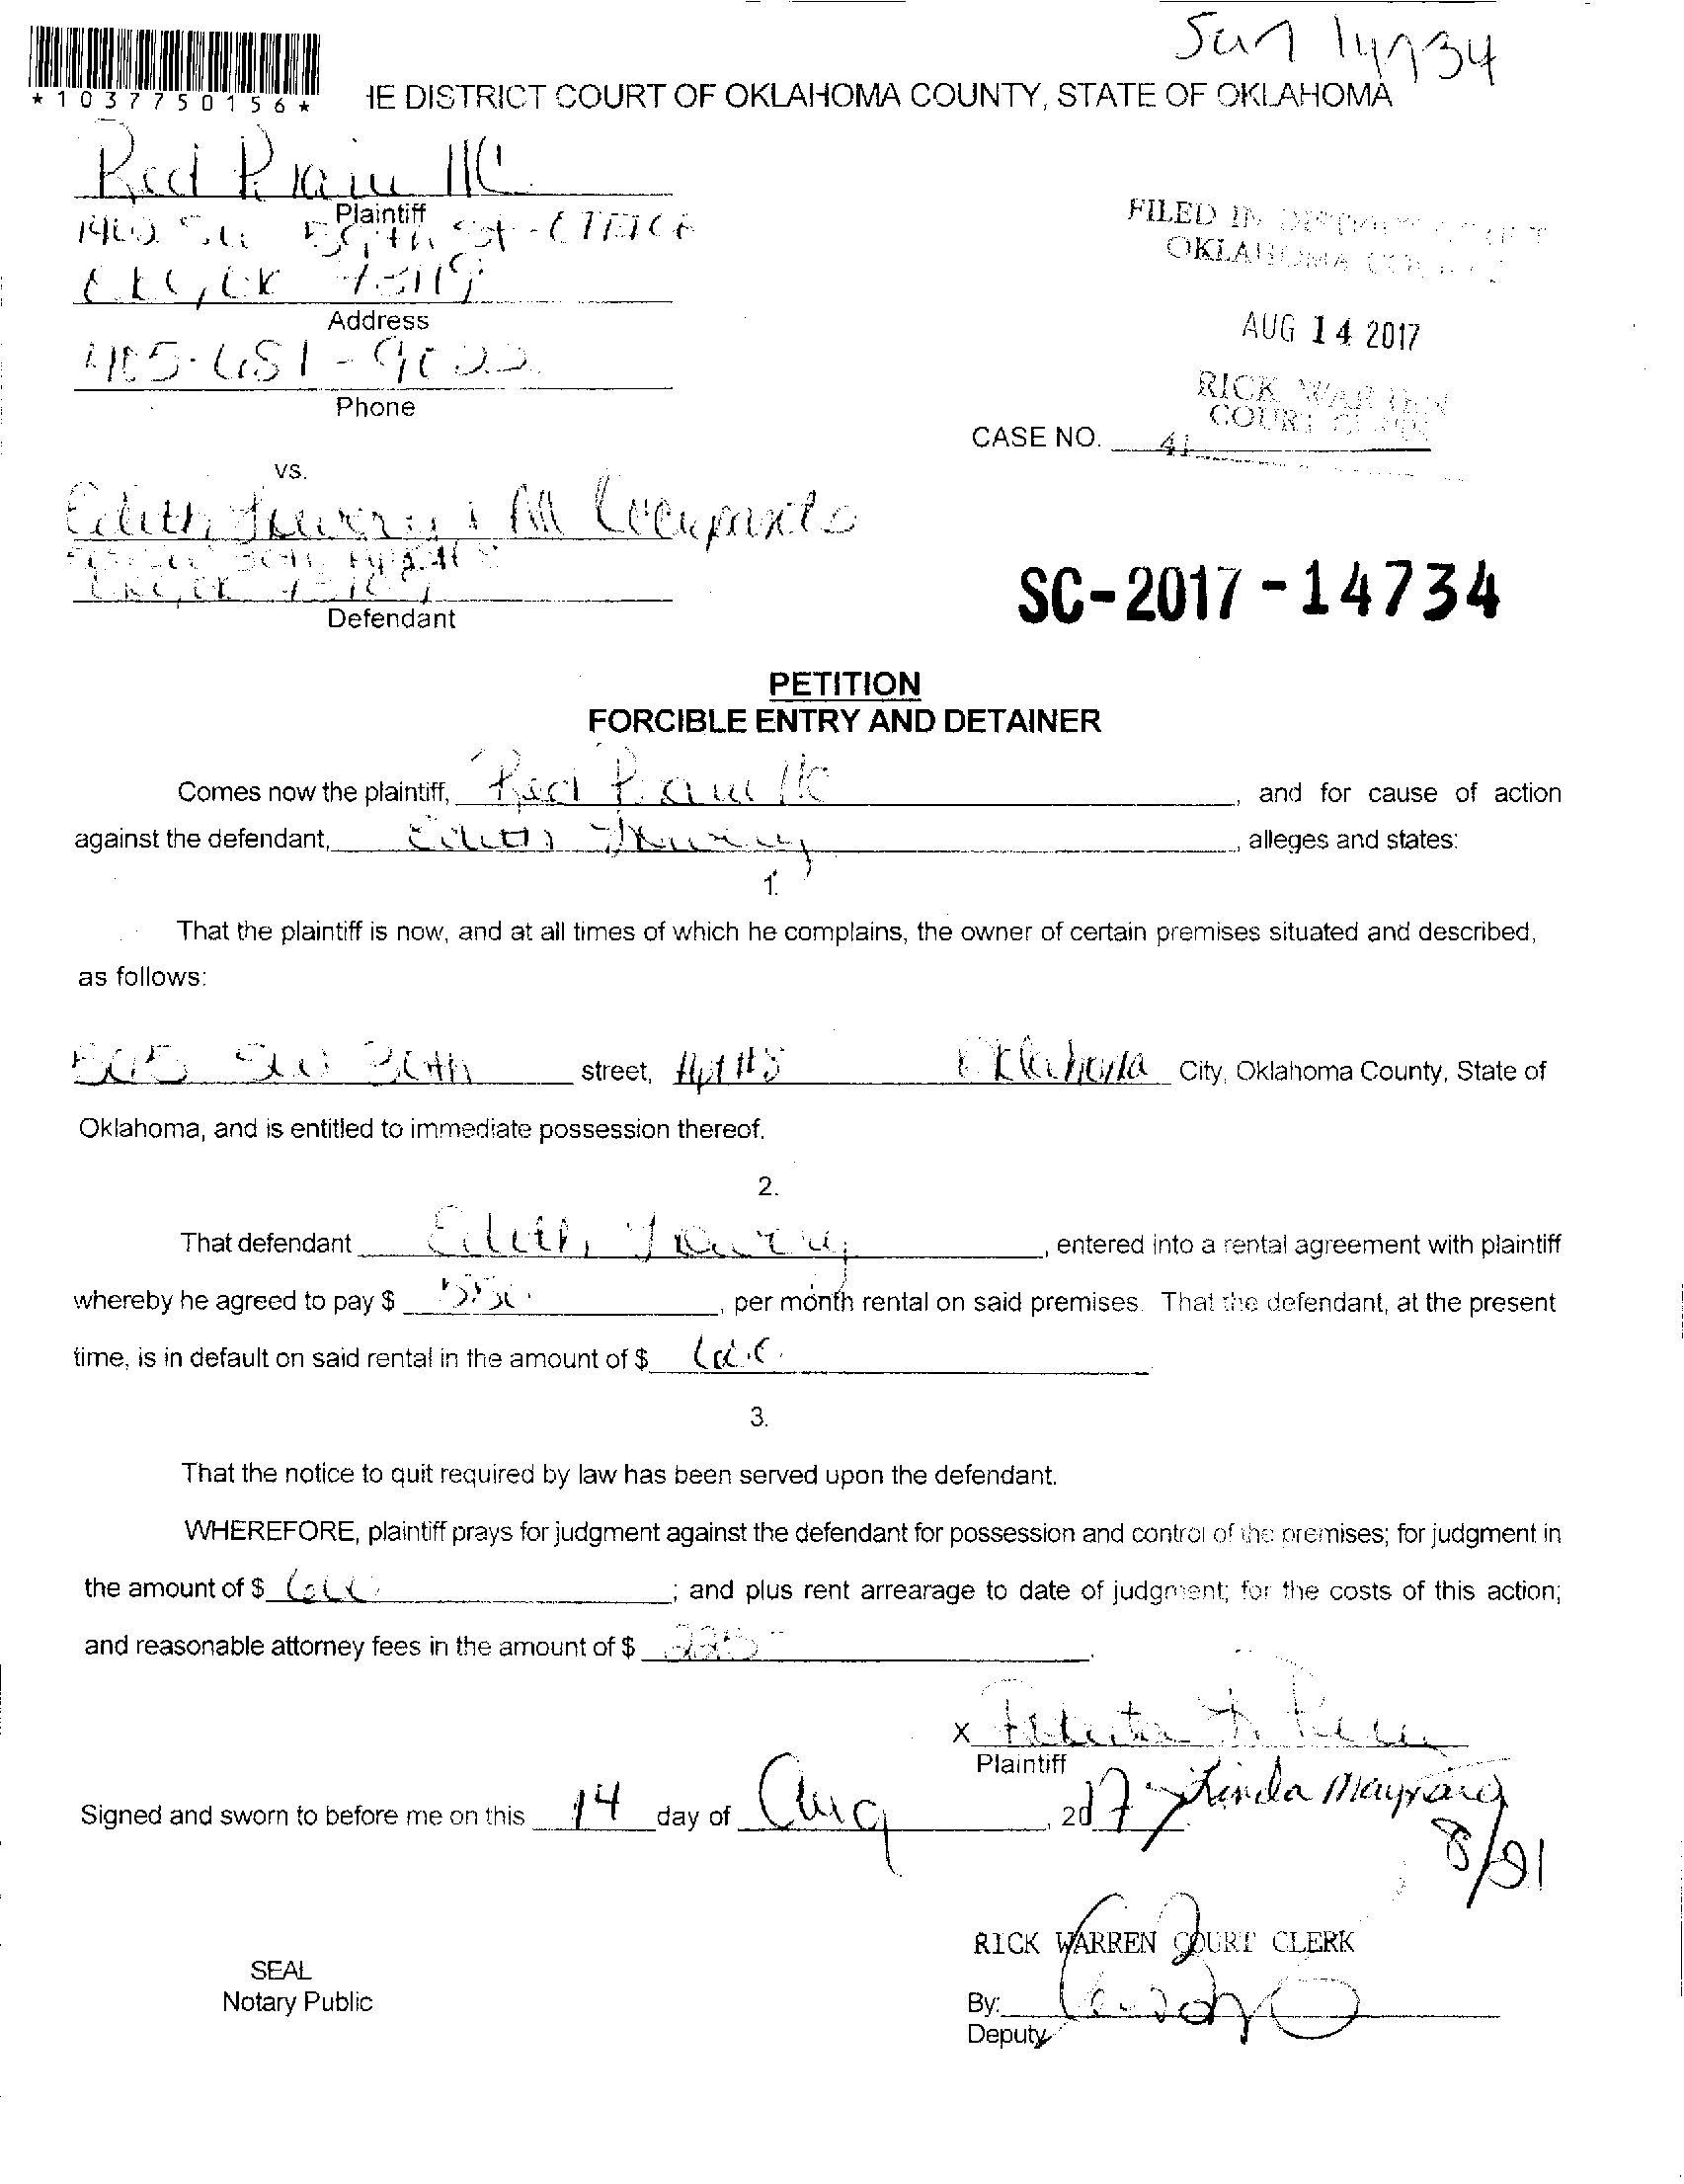 14734
*1037750156*
HE DISTRICT COURT OF OKLAHOMA COUNTY, STATE OF OKLAHOMA
Red
Plaintiff
FILED IN DISTRICT COURT
OKLAHOMA COUNTY
Address
AUG 14 2017
405-681-9022
RICK WARREN
COURT CLERK
Phone
CASE NO. 41
vs.
Edith & All Occupants
SC-2017-14734
Defendant
PETITION
FORCIBLE ENTRY AND DETAINER
Comes now the plaintiff, Red , and for cause of action
against the defendant, Edith , alleges and states:
1.
That the plaintiff is now, and at all times of which he complains, the owner of certain premises situated and described,
as follows:
SW 30th street, Apt #5 Oklahoma City, Oklahoma County, State of
Oklahoma, and is entitled to immediate possession thereof.
2.
That defendant Edith , entered into a rental agreement with plaintiff
whereby he agreed to pay $ , per month rental on said premises. That the defendant, at the present
time, is in default on said rental in the amount of $
3.
That the notice to quit required by law has been served upon the defendant.
WHEREFORE, plaintiff prays for judgment against the defendant for possession and control of the premises; for judgment in
the amount of $ ; and plus rent arrearage to date of judgment; for the costs of this action;
and reasonable attorney fees in the amount of $ 225
X
Plaintiff
Signed and sworn to before me on this 14 day of Aug , 2017 Linda Maynard
8/21
RICK WARREN COURT CLERK
SEAL
Notary Public
By:
Deputy